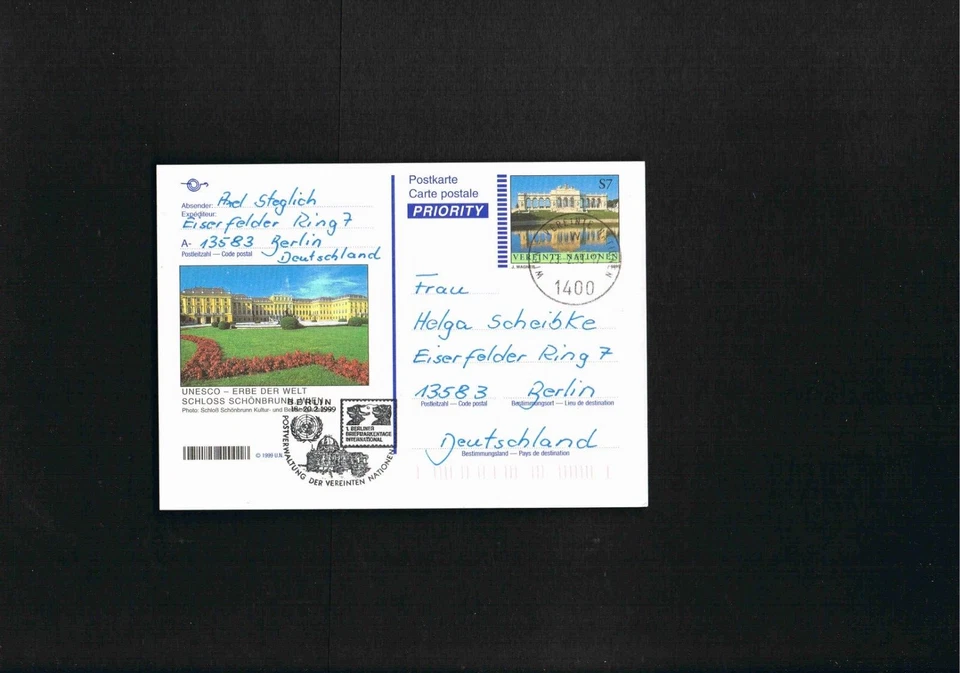 Absender: Axel Steglich
Expéditeur:
Eiserfelder Ring 7
A- 13583 Berlin
Postleitzahl — Code postal
Deutschland
UNESCO – ERBE DER WELT
SCHLOSS SCHÖNBRUNN
Photo: Schloß Schönbrunn Kultur- und
© 1999 U.N.
BERLIN
18.-20.2.1999
1. BERLINER
BRIEFMARKENTAGE
INTERNATIONAL
POSTVERWALTUNG DER VEREINTEN NATIONEN
Postkarte
Carte postale
PRIORITY
S7
VEREINTE NATIONEN
J. WAGNER
1400
Frau
Helga Scheibke
Eiserfelder Ring 7
13583 Berlin
Postleitzahl — Code postal Bestimmungsort — Lieu de destination
Deutschland
Bestimmungsland — Pays de destination